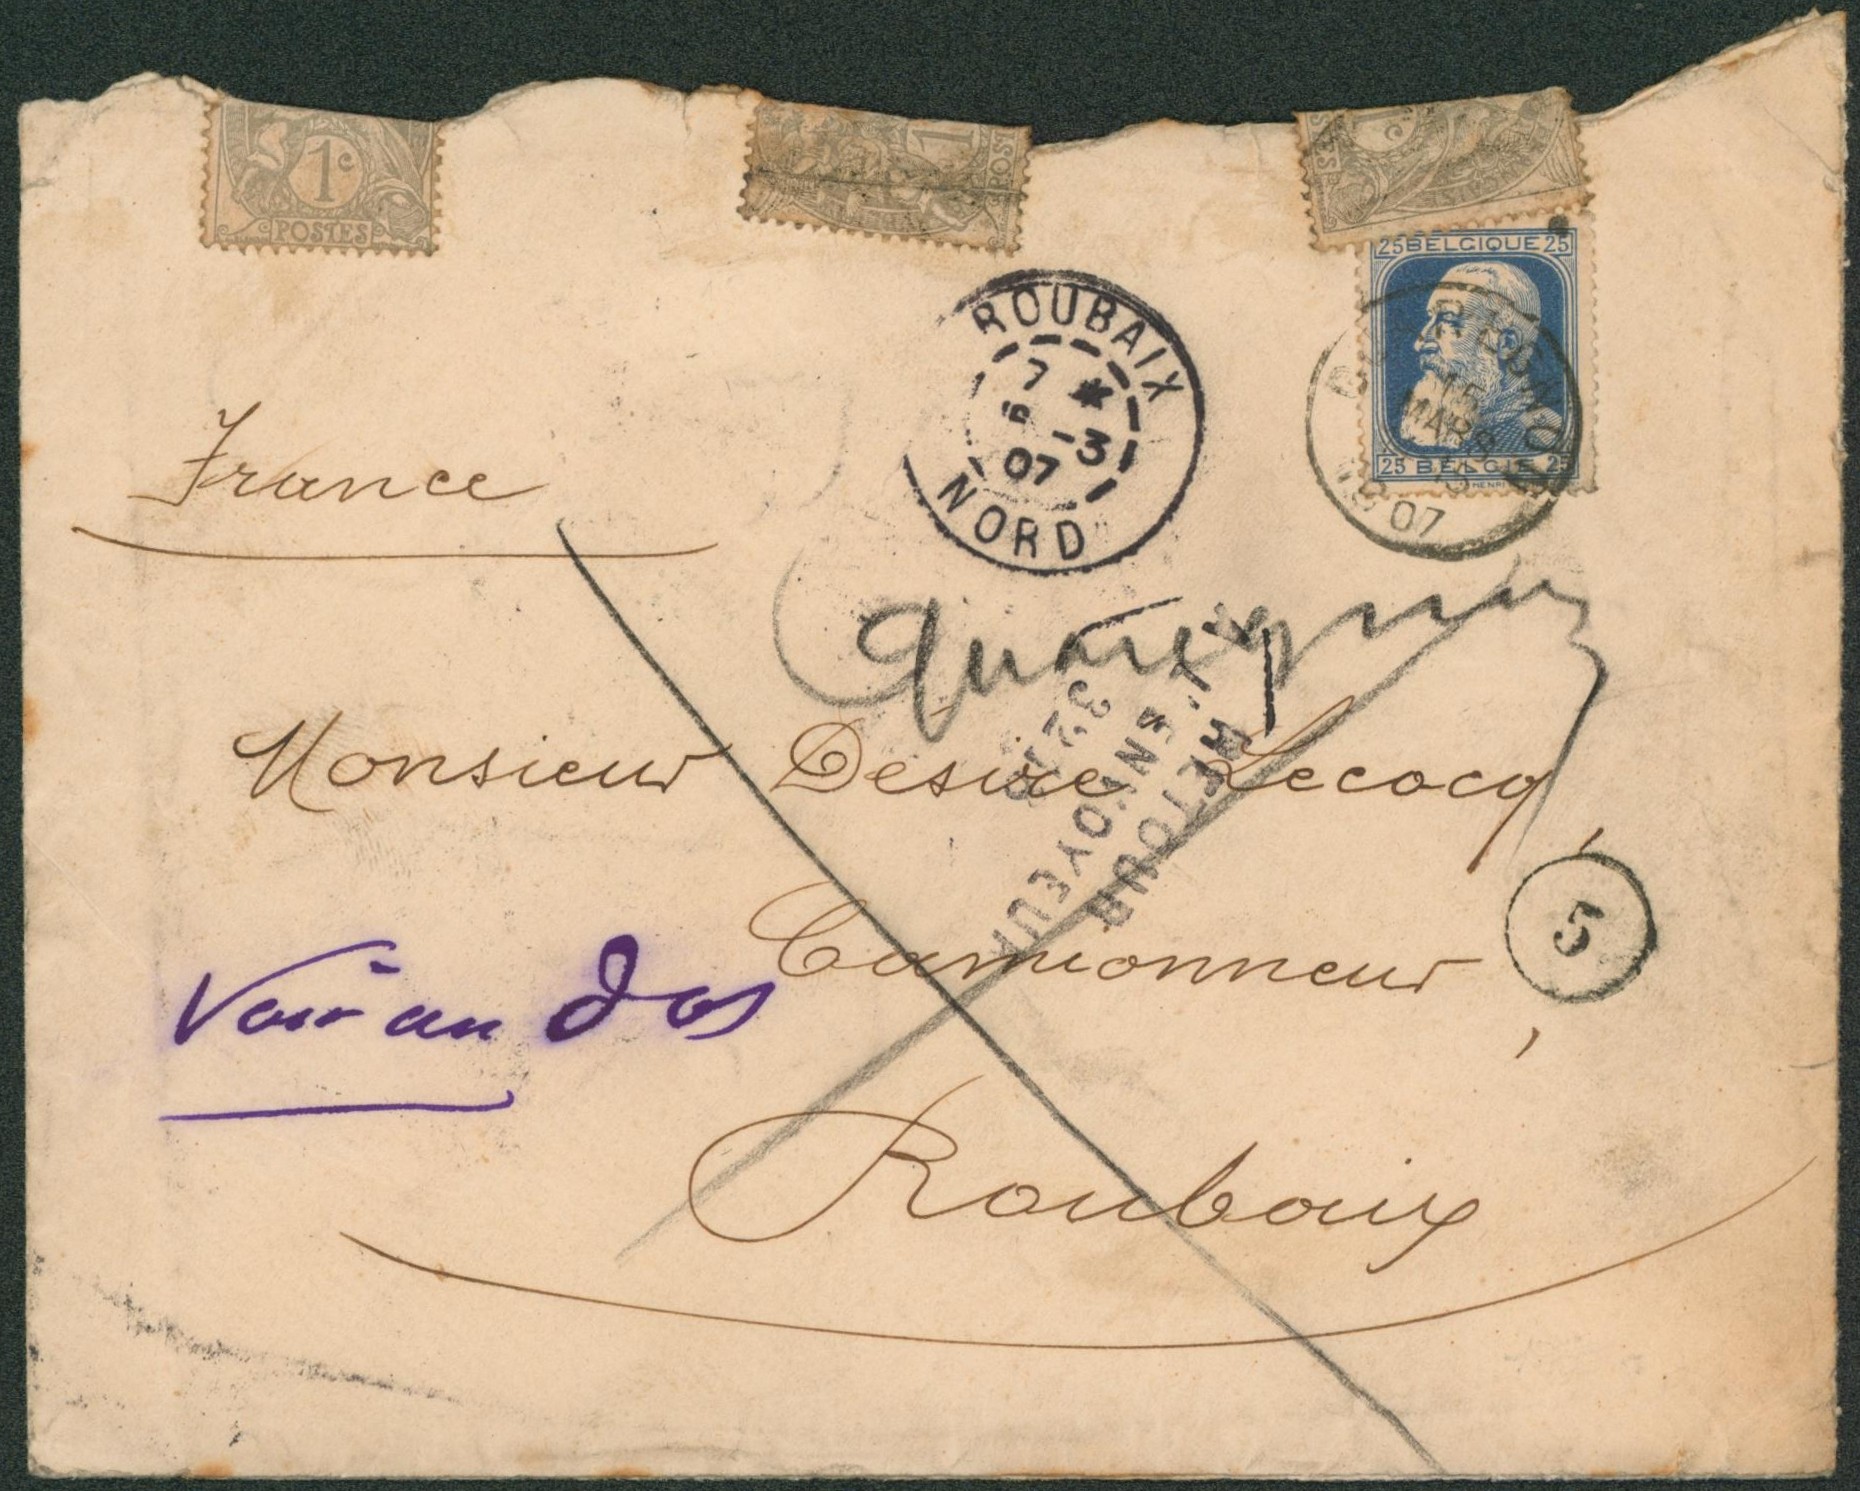 1c
POSTES
1
POST
25 BELGIQUE 25
25 BELGIE 25
MARS
07
ROUBAIX
7 *
-3
07
NORD
France
Quaregnon
RETOUR
A L'ENVOYEUR
Monsieur Désiré Lecocq,
Camionneur,
5
Voir au dos
Roubaix